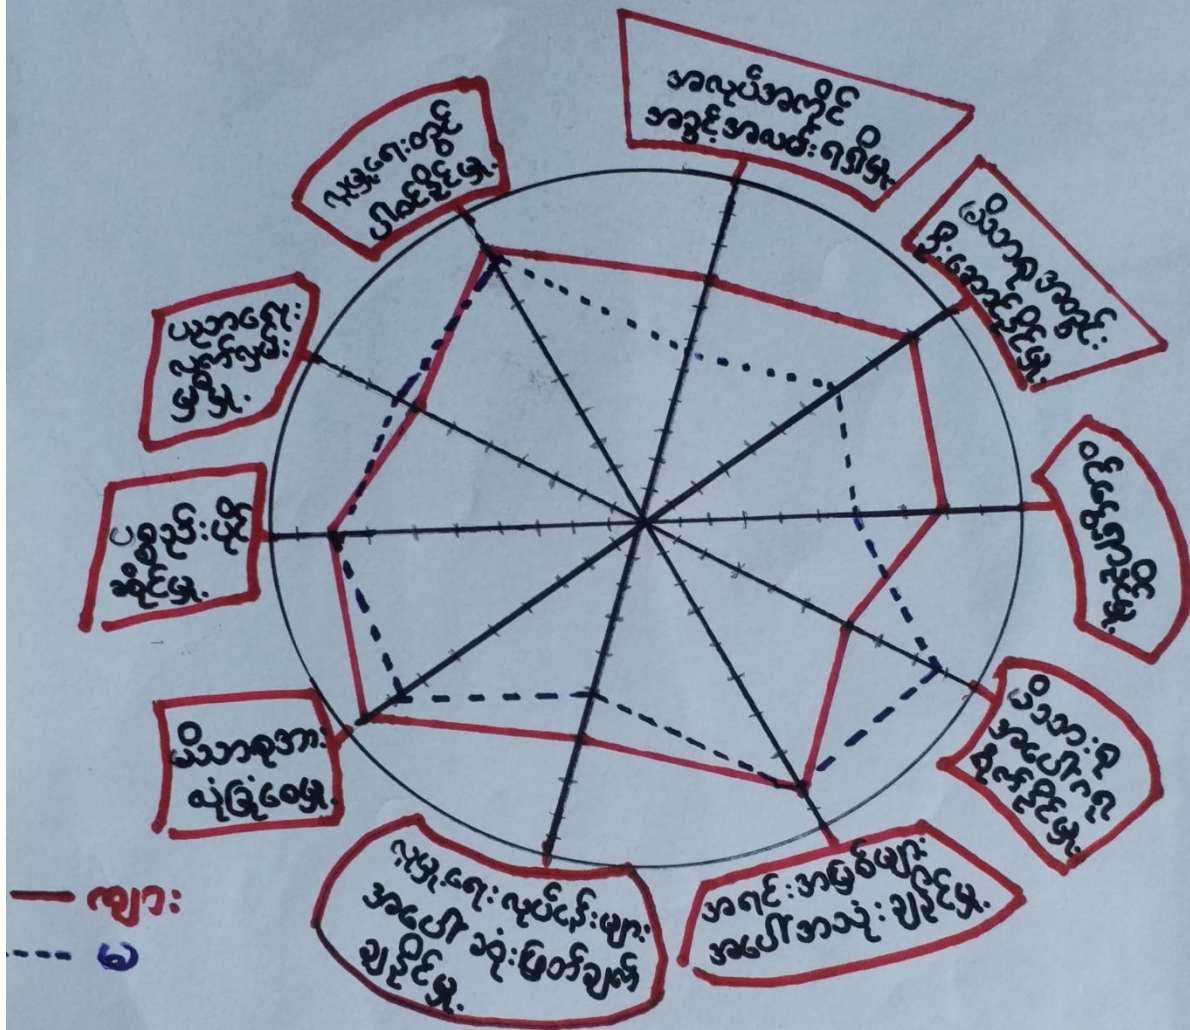 အလုပ်အကိုင်
အခွင့်အလမ်းရရှိမှု
မိသားစုအတွင်း
ဦးဆောင်နိုင်မှု
ဝင်ငွေရှာနိုင်မှု
မိသားစု
အပေါ်ဂရု
စိုက်နိုင်မှု
အရင်းအမြစ်များ
အပေါ်အသုံးချနိုင်မှု
လူမှုရေးလုပ်ငန်းများ
အပေါ် ဆုံးဖြတ်ချက်
ချနိုင်မှု
မိသားစုအား
လုံခြုံစေမှု
ပစ္စည်းပိုင်
ဆိုင်မှု
ပညာရေး
လွှမ်း
မှု
လူမှုရေးတွင်
ပါဝင်နိုင်မှု
ကျား
မ